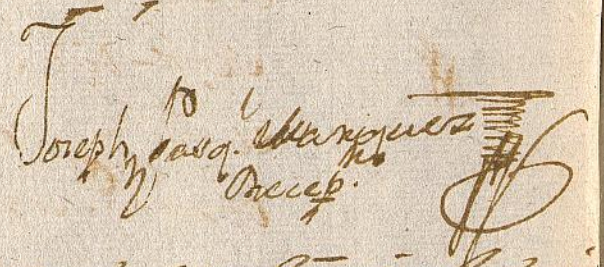 Joseph Pasq. Marquez
Recep.